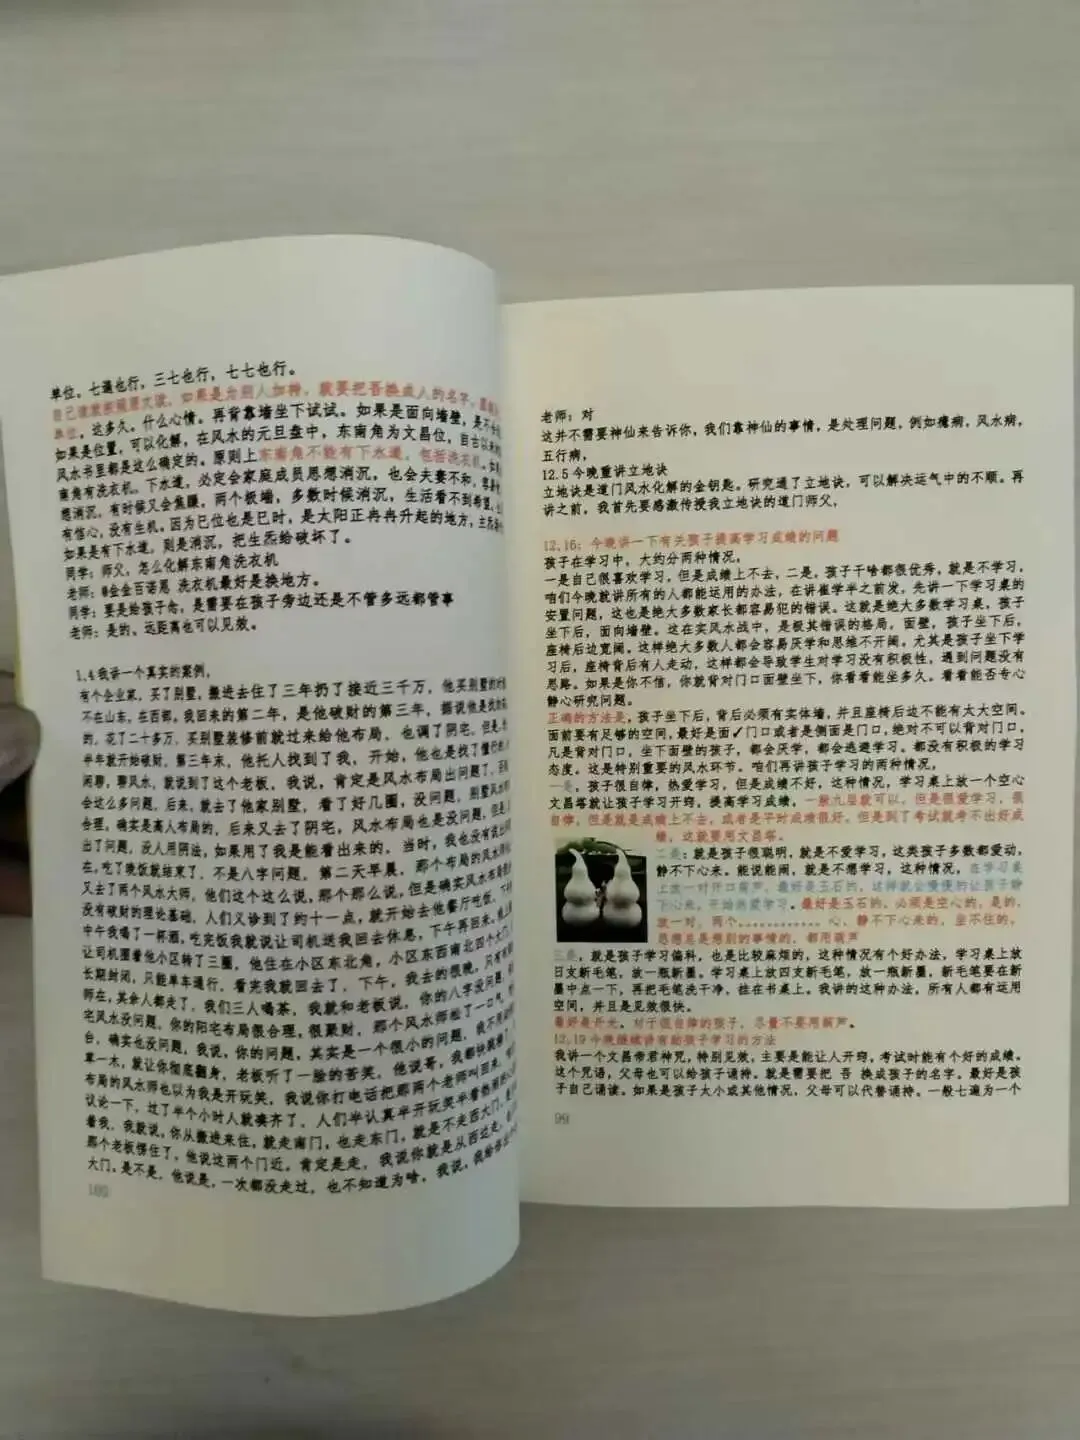 单位,七遍也行,三七也行,七七也行。
自己读就按照原文读,如果是为别人加持,就要把吾换成人的名字,
单位。这多久。什么心情。再背靠墙坐下试试。如果是面向墙壁,是不
如果是位置,可以化解,在风水的元旦盘中,东南角为文昌位,自古以来的
风水书里都是这么确定的。原则上东南角不能有下水道,包括洗衣机。
南角有洗衣机。下水道,必定会家庭成员思想消沉,也会夫妻不和,
想消沉,有时候又会焦躁,两个极端,多数时候消沉,生活看不到希望,
有信心,没有生机。因为巳位也是巳时,是太阳正冉冉升起的地方,主
如果是有下水道,则是消沉,把生炁给破坏了。
同学:师父,怎么化解东南角洗衣机
老师:@金金百诺恩 洗衣机最好是换地方。
同学:要是给孩子念,是需要在孩子旁边还是不管多远都管事
老师:是的。远距离也可以见效。
1.4我讲一个真实的案例,
有个企业家,买了别墅,搬进去住了三年扔了接近三千万,他买别墅的
不在山东,在西部。我回来的第二年,是他破财的第三年,据说他是找的
的,花了二十多万,买别墅装修前就过来给他布局,也调了阴宅,但是,
半年就开始破财。第三年末,他托人找到了我,开始,他也是找了懂行的
闲聊,聊风水,就说到了这个老板,我说,肯定是风水布局出问题了,
会这么多问题,后来,就去了他家别墅,看了好几圈,没问题,别墅风水
合理,确实是高人布局的,后来又去了阴宅,风水布局也是没问题,但是
出了问题,没人用阴法,如果用了我是能看出来的。当时,我也没有说出
在,吃了晚饭就结束了,不是八字问题,第二天早晨,那个布局的风水师
又去了两个风水大师,他们这个这么说,那个那么说,但是确实风水布局
没有破财的理论基础,人们义诊到了约十一点,就开始去他餐厅吃饭,下
中午我喝了一杯酒,吃完饭我就说让司机送我回去休息,下午再回来,
让司机围着他小区转了三圈,他住在小区东北角,小区东西南北四个大门
长期封闭,只能单车通行。看完我就回去了,下午,我去的很晚,只有
师在,其余人都走了,我们三人喝茶,我就和老板说,你的八字没问题,
宅风水没问题,你的阳宅布局很合理,很聚财,那个风水师松了一口气,
台,确实也没问题,我说,你的问题,其实是一个很小的问题,我不用动
草一木,就让你彻底翻身,老板听了一脸的苦笑,他说哥,我都快
布局的风水师也以为我是开玩笑,我说你打电话把那两个老师叫回来,
议论一下,过了半个小时人就凑齐了,人们半认真半开玩笑半看热
着我,我就说,你从搬进来住,就走南门,也走东门,就是不走西大门,
那个老板愣住了,他说这两个门近。肯定是走,我说你就是从西边走,
大门,是不是,他说是,一次都没走过,也不知道为啥,我说,我给你
100
老师:对
这并不需要神仙来告诉你,我们靠神仙的事情,是处理问题,例如癔病,风水病,
五行病,
12.5今晚重讲立地诀
立地诀是道门风水化解的金钥匙。研究通了立地诀,可以解决运气中的不顺。再
讲之前,我首先要感激传授我立地诀的道门师父,
12.16:今晚讲一下有关孩子提高学习成绩的问题
孩子在学习中,大约分两种情况,
一是自己很喜欢学习,但是成绩上不去,二是,孩子干啥都很优秀,就是不学习,
咱们今晚就讲所有的人都能运用的办法,在讲崔学半之前发,先讲一下学习桌的
安置问题,这也是绝大多数家长都容易犯的错误。这就是绝大多数学习桌,孩子
坐下后,面向墙壁。这在实风水战中,是极其错误的格局,面壁,孩子坐下后,
座椅后边宽阔。这样绝大多数人都会容易厌学和思维不开阔。尤其是孩子坐下学
习后,座椅背后有人走动,这样都会导致学生对学习没有积极性,遇到问题没有
思路。如果是你不信,你就背对门口面壁坐下,你看看能坐多久。看看能否专心
静心研究问题。
正确的方法是,孩子坐下后,背后必须有实体墙,并且座椅后边不能有太大空间。
面前要有足够的空间,最好是面✓门口或者是侧面是门口,绝对不可以背对门口。
凡是背对门口,坐下面壁的孩子,都会厌学,都会逃避学习。都没有积极的学习
态度。这是特别重要的风水环节。咱们再讲孩子学习的两种情况,
一是,孩子很自律,热爱学习,但是成绩不好,这种情况,学习桌上放一个空心
文昌塔就让孩子学习开窍,提高学习成绩,一般九层就可以,但是很爱学习,很
自律,但是就是成绩上不去,或者是平时成绩很好,但是到了考试就考不出好成
绩,这就要用文昌塔。
二是:就是孩子很聪明,就是不爱学习,这类孩子多数都爱动,
静不下心来。能说能闹,就是不想学习,这种情况,在学习桌
上放一对开口葫芦,最好是玉石的,这样就会慢慢的让孩子静
下心来,开始热爱学习。最好是玉石的,必须是空心的,是的,
放一对,两个............ 心,静不下心来的,坐不住的,
思想总是想别的事情的,都用葫芦
三是,就是孩子学习偏科,也是比较麻烦的,这种情况有个好办法,学习桌上放
日支新毛笔,放一瓶新墨。学习桌上放四支新毛笔,放一瓶新墨,新毛笔要在新
墨中点一下,再把毛笔洗干净,挂在书桌上。我讲的这种办法,所有人都有运用
空间,并且是见效很快。
最好是开光。对于很自律的孩子,尽量不要用葫芦。
12.19今晚继续讲有助孩子学习的方法
我讲一个文昌帝君神咒,特别见效,主要是能让人开窍,考试时能有个好的成绩。
这个咒语,父母也可以给孩子诵持。就是需要把 吾 换成孩子的名字。最好是孩
子自己诵读。如果是孩子太小或其他情况,父母可以代替诵持。一般七遍为一个
99